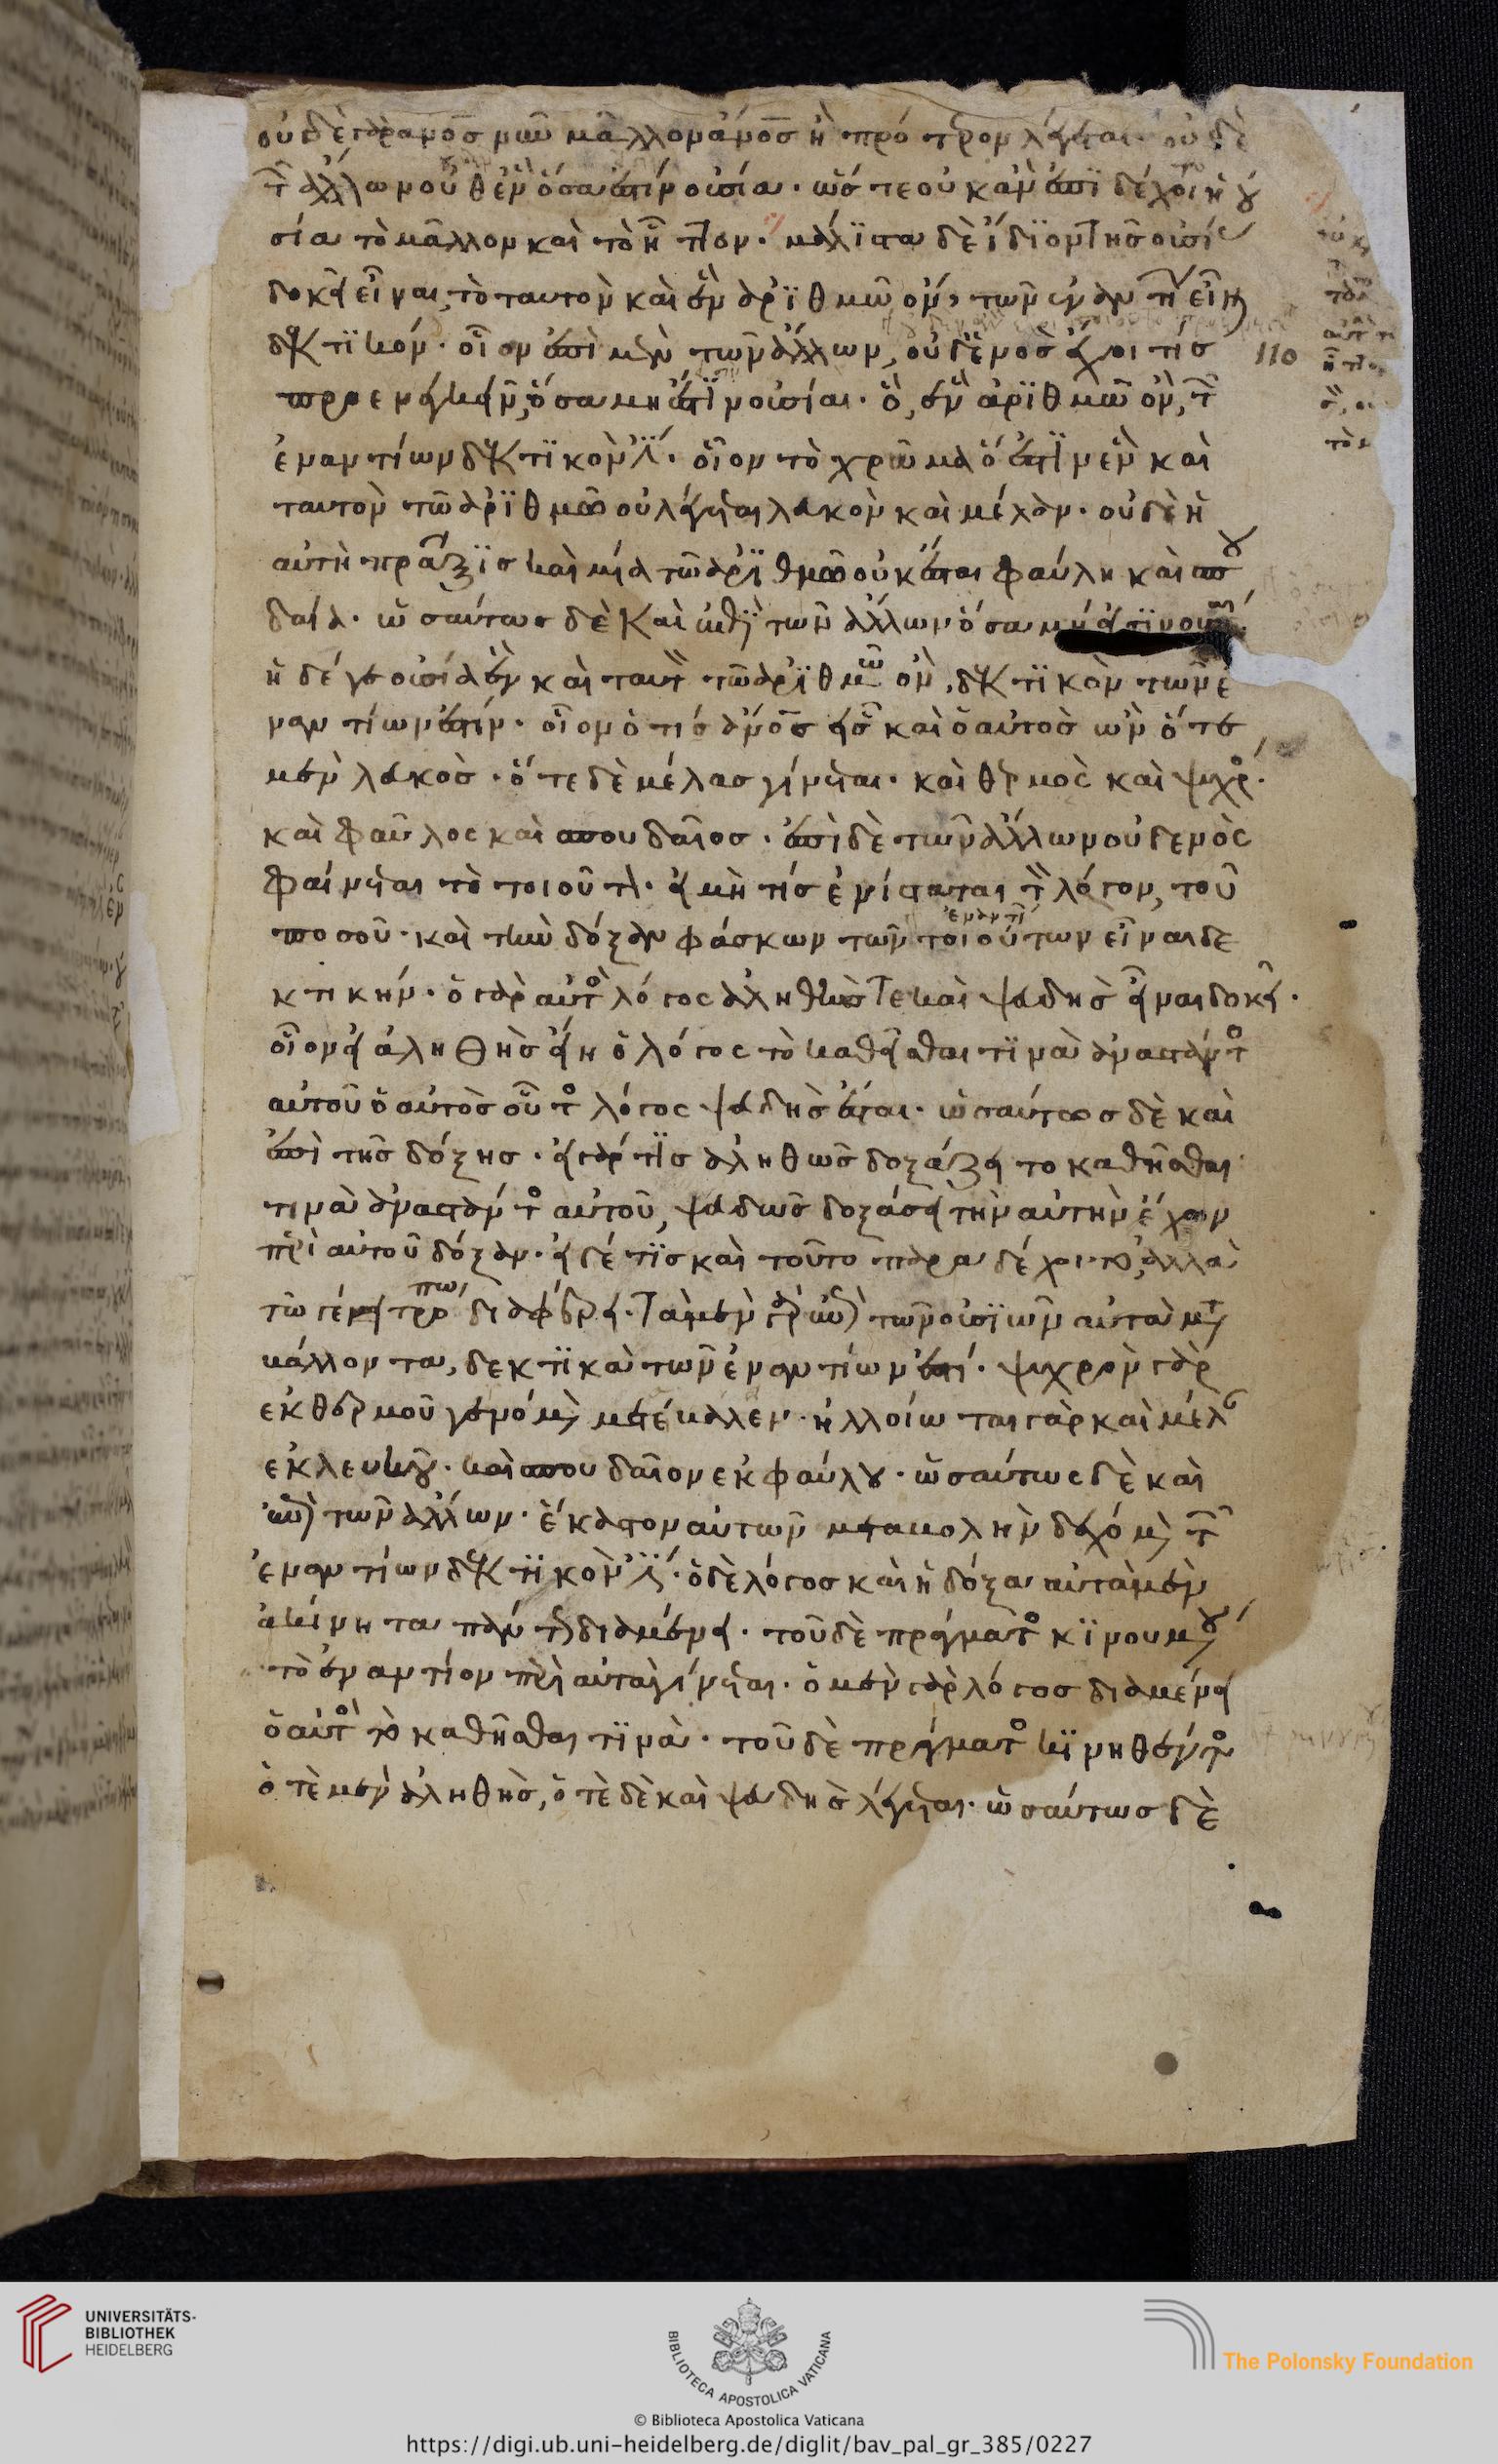 οὐδὲ γὰρ ἄνος νῦν μᾶλλον ἄνος ἢ πρότερον λέγεται· οὐδὲ
τῶν ἄλλων οὐθὲν ὅσα ἐστὶν οὐσία· ὥστε οὐκ ἂν ἐπιδέχοιτο ἡ οὐ
σία τὸ μᾶλλον καὶ τὸ ἧττον· μάλιστα δὲ ἴδιον τῆς οὐσίας
δοκεῖ εἶναι, τὸ ταυτὸν καὶ ἓν ἀριθμῷ ὄν, τῶν ἐναντίων εἶναι
δεκτικόν· οἷον ἐπὶ μὲν τῶν ἄλλων, οὐδενὸς ἔχοι τις
προενεγκεῖν, ὅσα μή ἐστιν οὐσίαι· ὃ, ἓν ἀριθμῷ ὂν, τῶν
ἐναντίων δεκτικόν ἐστί· οἷον τὸ χρῶμα ὅ ἐστιν ἓν καὶ
ταυτὸν τῷ ἀριθμῷ οὐ λέγεται λευκὸν καὶ μέλαν· οὐδὲ ἡ
αὐτὴ πρᾶξις καὶ μία τῷ ἀριθμῷ οὐκ ἔσται φαύλη καὶ σπου
δαία· ὡσαύτως δὲ καὶ ἐπὶ τῶν ἄλλων ὅσα μή ἐστιν οὐσίαι·
ἡ δέ γε οὐσία ἓν καὶ ταυτὸν τῷ ἀριθμῷ ὂν, δεκτικὸν τῶν ἐ
ναντίων ἐστίν· οἷον ὁ τὶς ἄνος εἷς καὶ ὁ αὐτὸς ὢν ὅτε
μὲν λευκὸς· ὅτε δὲ μέλας γίνεται· καὶ θερμὸς καὶ ψυχρός·
καὶ φαῦλος καὶ σπουδαῖος· ἐπὶ δὲ τῶν ἄλλων οὐδενὸς
φαίνεται τὸ τοιοῦτον· εἰ μή τις ἐνίσταται τὸν λόγον, τοῦ
ποσοῦ· καὶ τὴν δόξαν φάσκων τῶν τοιούτων εἶναι δε
ἐναντί
κτικήν· ὁ γὰρ αὐτὸς λόγος ἀληθής τε καὶ ψευδὴς εἶναι δοκεῖ·
οἷον εἰ ἀληθὴς εἴη ὁ λόγος τὸ καθῆσθαι τινὰ ἀναστάντος
αὐτοῦ ὁ αὐτὸς οὗτος λόγος ψευδὴς ἔσται· ὡσαύτως δὲ καὶ
ἐπὶ τῆς δόξης· εἰ γάρ τις ἀληθῶς δοξάζει το καθῆσθαι
τινὰ ἀναστάντος αὐτοῦ, ψευδῶς δοξάσει τὴν αὐτὴν ἔχων
περὶ αὐτοῦ δόξαν· εἰ δέ τις καὶ τοῦτο παραδέχοιτο, ἀλλὰ
τῷ γε τρόπῳ διαφέρει· τὰ μὲν γὰρ ἐπὶ τῶν οὐσιῶν αὐτὰ με
τάλλοντα, δεκτικὰ τῶν ἐναντίων ἐστί· ψυχρὸν γὰρ
εκ θερμοῦ γενόμενον μετέβαλεν· ἠλλοίωται γὰρ καὶ μέλαν
εκ λευκοῦ· καὶ σπουδαῖον εκ φαύλου· ὡσαύτως δὲ καὶ
ἐπὶ τῶν ἄλλων· ἕκαστον αὐτῶν μεταβολὴν δεχόμενον τῶν
ἐναντίων δεκτικόν ἐστί· ὁ δὲ λόγος καὶ ἡ δόξα αὐτὰ μὲν
ἀκίνητα πάντῃ διαμένει· τοῦ δὲ πράγματος κινουμένου
τὸ ἐναντίον περὶ αὐτὰ γίνεται· ὁ μὲν γὰρ λόγος διαμένει
ὁ αὐτὸς τὸ καθῆσθαι τινὰ· τοῦ δὲ πράγματος κινηθέντος
ὁτὲ μὲν ἀληθὴς, ὁτὲ δὲ καὶ ψευδὴς λέγεται· ὡσαύτως δὲ
110
UNIVERSITÄTS-
BIBLIOTHEK
HEIDELBERG
BIBLIOTECA APOSTOLICA VATICANA
The Polonsky Foundation
© Biblioteca Apostolica Vaticana
https://digi.ub.uni-heidelberg.de/diglit/bav_pal_gr_385/0227